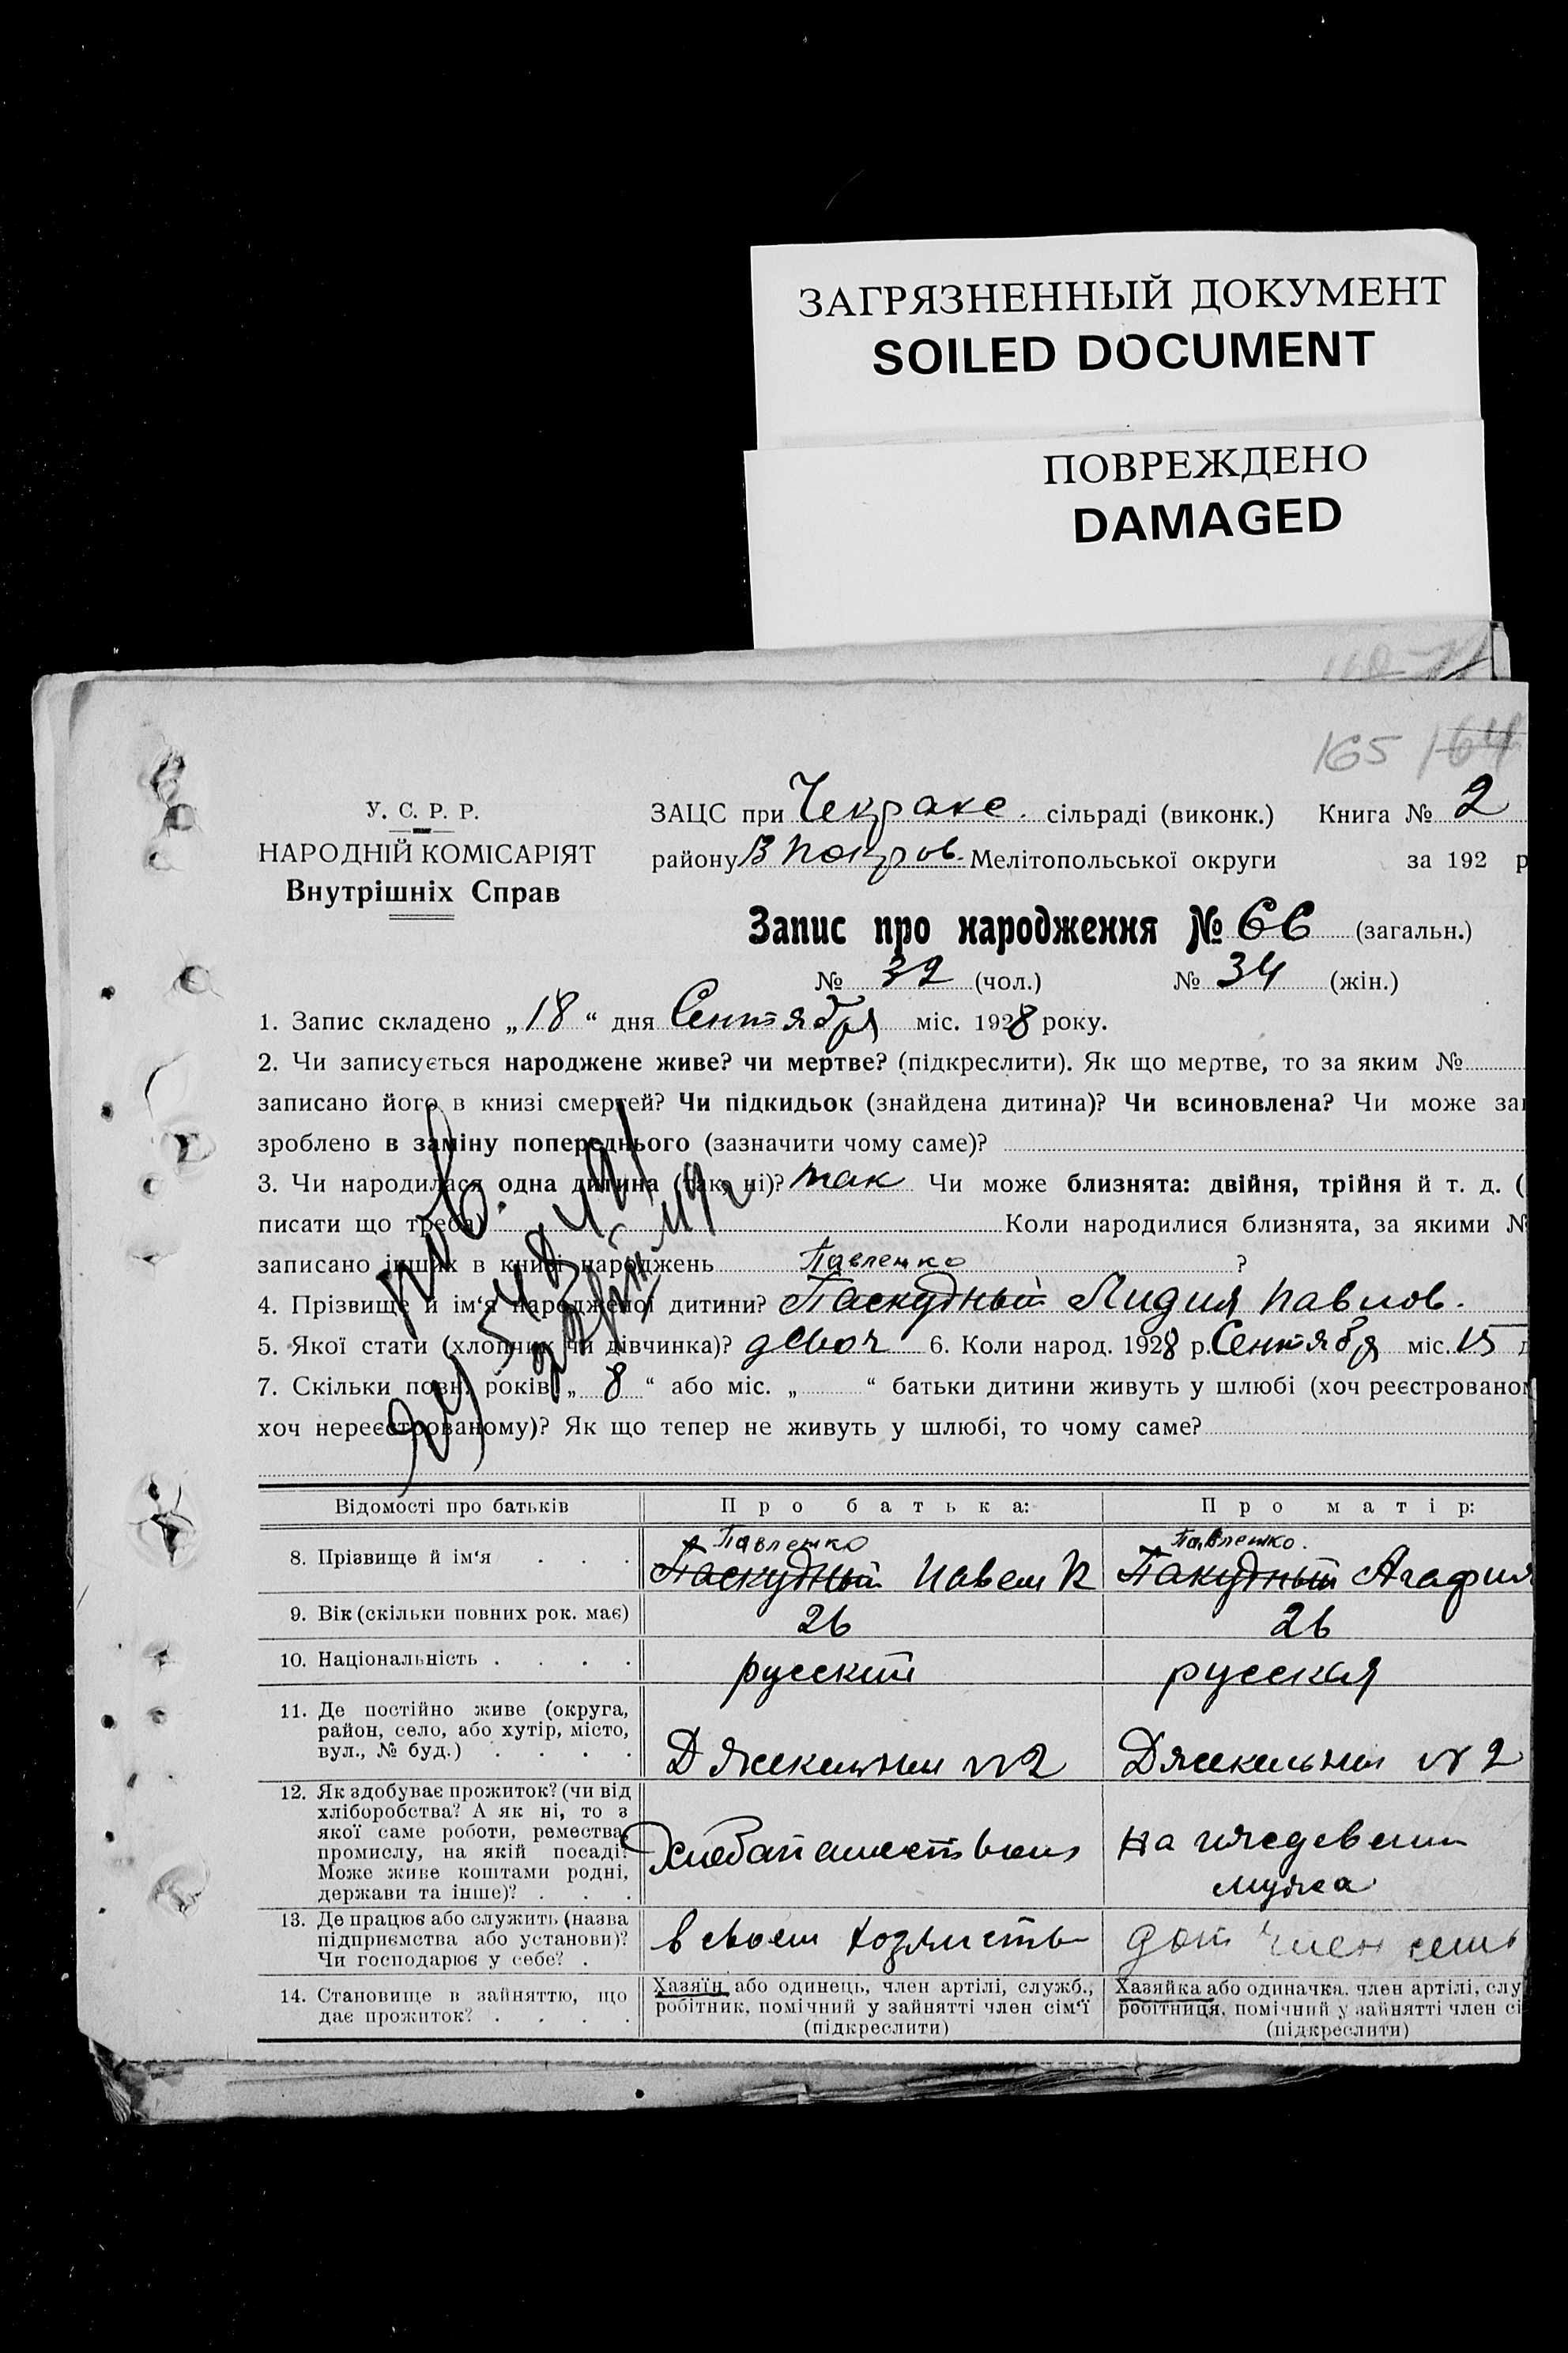 ЗАГРЯЗНЕННЫЙ ДОКУМЕНТ
SOILED DOCUMENT
ПОВРЕЖДЕНО
DAMAGED
165 164
У. С. Р. Р.
НАРОДНІЙ КОМІСАРІЯТ
Внутрішніх Справ
ЗАЦС при Чекрак. сільраді (виконк.) Книга № 2
району В Покров. Мелітопольської округи за 192 р
Запис про народження № 66 (загальн.)
№ 32 (чол.) № 34 (жін.)
1. Запис складено „18“ дня Сентября міс. 1928 року.
2. Чи записується народжене живе? чи мертве? (підкреслити). Як що мертве, то за яким №
записано його в книзі смертей? Чи підкидьок (знайдена дитина)? Чи всиновлена? Чи може за
зроблено в заміну попереднього (зазначити чому саме)?
3. Чи народилася одна дитина (так, ні)? так Чи може близнята: двійня, трійня й т. д. (
писати що треба) Коли народилися близнята, за якими №
записано інших в книзі народжень ?
Павленко
4. Прізвище й ім‘я народженої дитини? Паскудный Лидия Павлов.
5. Якої стати (хлопчик чи дівчинка)? девоч 6. Коли народ. 1928 р. Сентября міс. 15 д
7. Скільки повн. років „8“ або міс. „ “ батьки дитини живуть у шлюбі (хоч реєстровано
хоч нереєстрованому)? Як що тепер не живуть у шлюбі, то чому саме?
Відомості про батьків Про батька: Про матір:
Павленко Павленко.
8. Прізвище й ім‘я . . . Паскудный Павел К Пакудный Агафия
9. Вік (скільки повних рок. має) 26 26
10. Національність . . . . русский русская
11. Де постійно живе (округа,
район, село, або хутір, місто,
вул., № буд.) . . . . Джекельня №2 Джекельня № 2
12. Як здобуває прожиток? (чи від
хліборобства? А як ні, то з
якої саме роботи, ремества,
промислу, на якій посаді?
Може живе коштами родні,
держави та інше)? . . . Хлебопашеством на иждевении
мужа
13. Де працює або служить (назва
підприємства або установи)?
Чи господарює у себе? . в своем хозяйстве дом член семь
14. Становище в зайняттю, що
дає прожиток? . . . .
Хазяїн або одинець, член артілі, служб.,
робітник, помічний у зайнятті член сім‘ї
(підкреслити)
Хазяйка або одиначка, член артілі, слу
робітниця, помічний у зайнятті член сі
(підкреслити)